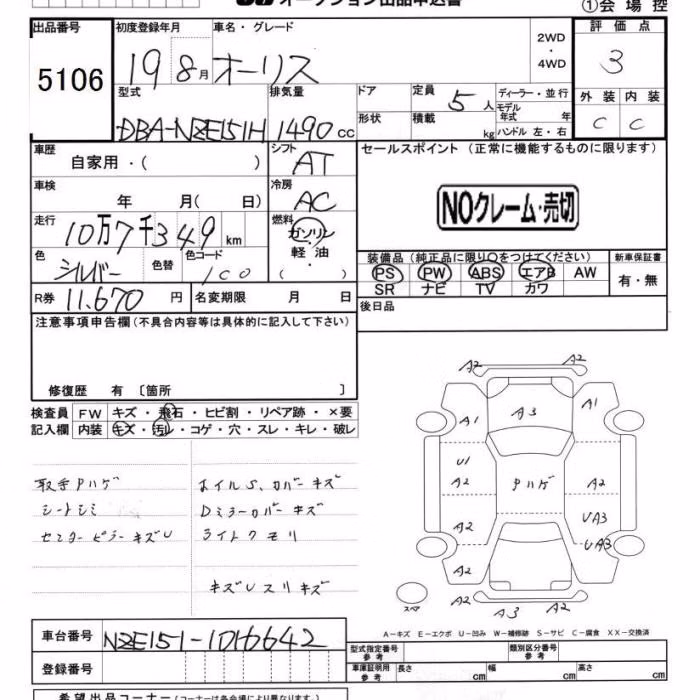 オークション出品申込書
①会場控
出品番号 5106
初度登録年月 19 8月
車名・グレード オーリス
2WD・4WD
評価点 3
外装 C 内装 C
型式 DBA-NZE151H
排気量 1490 cc
ドア
形状
定員 5人
積載 kg
ディーラー・並行
モデル年式 年
ハンドル 左・右
車歴 自家用・( )
シフト AT
セールスポイント (正常に機能するものに限ります)
NOクレーム・売切
車検 年 月( 日)
冷房 AC
走行 10万7千349 km
燃料 ガソリン・軽油・( )
色 シルバー 色替 色コード 1C0
装備品 (純正品に限り○をつけてください)
新車保証書 有・無
PS PW ABS エアB AW
SR ナビ TV カワ
R券 11.670 円
名変期限 月 日
後日品
注意事項申告欄 (不具合内容等は具体的に記入して下さい)
修復歴 有 [箇所 ]
検査員記入欄
FW キズ・飛石・ヒビ割・リペア跡・×要
内装 キズ・汚レ・コゲ・穴・スレ・キレ・破レ
取手Pハゲ
シートシミ
センターピラーキズU
ホイルS、カバーキズ
Dミラーカバーキズ
ライトクモリ
キズUスリキズ
A2 A2
A1 A3 A1
U1
A2 Pハゲ A2
UA3
A2 UA3
A2 A2
A2 A3 A2
スペア
A-キズ E-エクボ U-凹み W-補修跡 S-サビ C-腐食 XX-交換済
車台番号 NZE151-1016642
登録番号
型式指定番号 参考
類別区分番号 参考
車庫証明用 参考 長さ cm 幅 cm 高さ cm
希望出品コーナー (コーナーは各会場により異なります。)